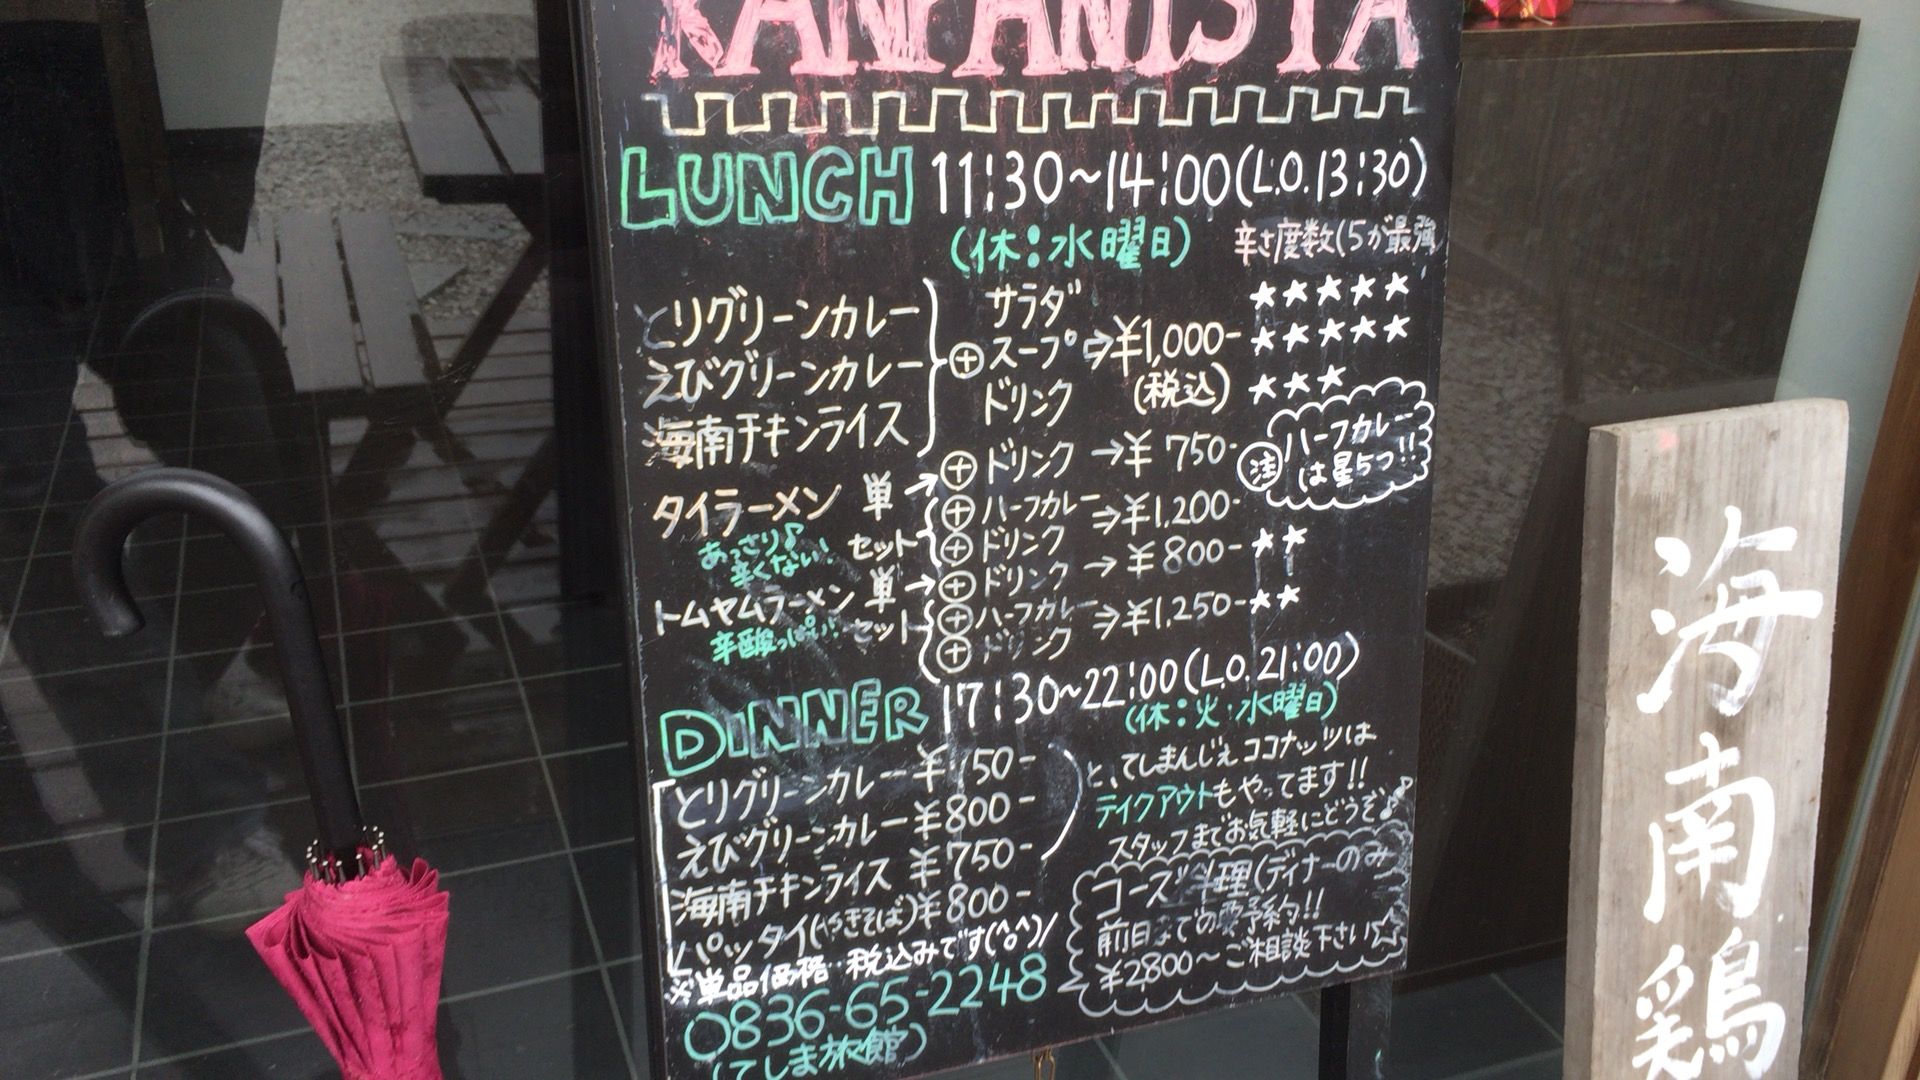 KANPANISTA
LUNCH 11:30~14:00(L.O.13:30)
(休:水曜日) 辛さ度数(5が最強
とりグリーンカレー ★★★★★
えびグリーンカレー ★★★★★
海南チキンライス ★★★
⊕ サラダ スープ ドリンク ⇒¥1,000- (税込)
タイラーメン 単→⊕ドリンク→¥750-
あっさり♪辛くない!
セット ⊕ハーフカレー ⊕ドリンク ⇒¥1,200-
注 ハーフカレーは星5つ!!
トムヤムラーメン 単→⊕ドリンク→¥800-★★
辛酸っぱい!
セット ⊕ハーフカレー ⊕ドリンク ⇒¥1,250-★★
DINNER 17:30~22:00(L.O.21:00)
(休:火・水曜日)
とりグリーンカレー ¥750-
えびグリーンカレー ¥800-
海南チキンライス ¥750-
パッタイ(やきそば) ¥800-
※単品価格…税込みです(^o^)/
0836-65-2248
(てしま旅館)
と、てしまんじぇココナッツは
テイクアウトもやってます!!
スタッフまでお気軽にどうぞ♪
コース料理(ディナーのみ
前日までの要予約!!
¥2800~ご相談下さい☆
海南鶏